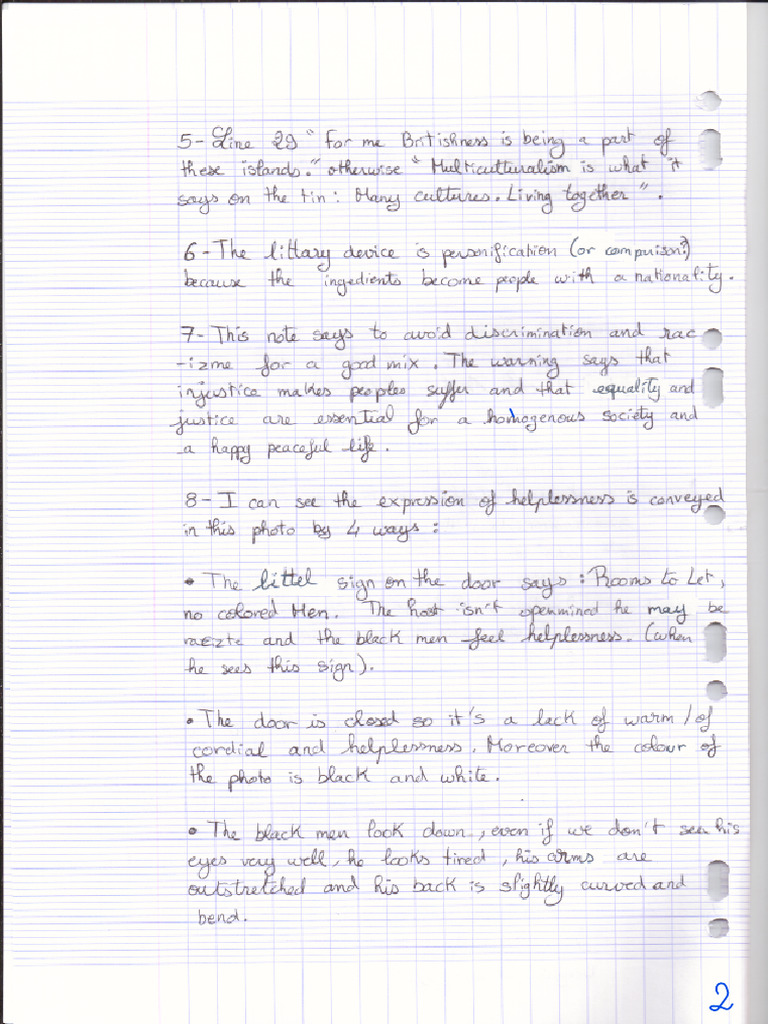 5- Line 29 " For me Britishness is being a part of
these islands." otherwise " Multiculturalism is what it
says on the tin : Many cultures. Living together ".
6- The littary device is personification (or comparison?)
because the ingredients become people with a nationality.
7- This note says to avoid discrimination and rac
-izme for a good mix. The warning says that
injustice makes peoples suffer and that equality and
justice are essential for a homogenous society and
a happy peaceful life.
8- I can see the expression of helplessness is conveyed
in this photo by 4 ways :
• The littel sign on the door says : Rooms to Let,
no colored Men. The host isn't openmined he may be
and the black men feel helplessness. (when
he sees this sign).
• The door is closed so it's a lack of warm / of
cordial and helplessness. Moreover the colour of
the photo is black and white.
• The black men look down, even if we don't see his
eyes very well, he looks tired, his arms are
outstretched and his back is slightly curved and
bend.
2